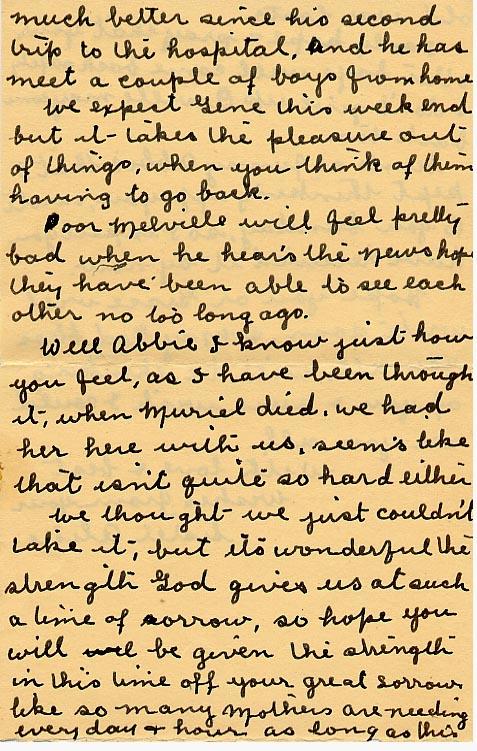 much better since his second
trip to the hospital, And he has
meet a couple of boys from home
We expect Gene this week end
but it takes the pleasure out
of things, when you think of them
having to go back.
Poor Melville will feel pretty
bad when he hear's the news hope
they have been able to see each
other no too long ago.
Well Abbie I know just how
you feel, as I have been through
it, when Muriel died. we had
her here with us, seem's like
that isn't quite so hard either
We thought we just couldn't
take it, but its wonderful the
strength God gives us at such
a time of sorrow, so hope you
will be given the strength
in this time off your great sorrow
like so many Mothers are needing
every day + hour as long as this